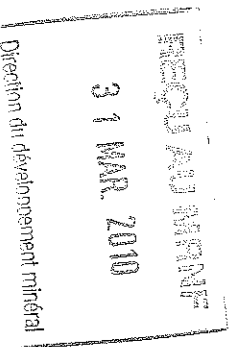 REÇU AU MRNF
31 MAR. 2010
Direction du développement minéral